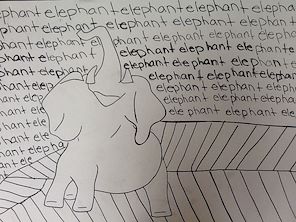 ephant elephant elephant elephant eleph
elephant elephant elephant elephant elephant
elephant eleph phant elephant elephant elephant
elephant elephant elephant elephant ele phant
elephant ele elephant elephant elephant
elephant elephant elephant elephant
elephant ele elephant elephant elephant
elephant ele elephant elephant elephant
phant ele ele phant elephant elephant
elephant ele
phant ele
hant ele
phant ele